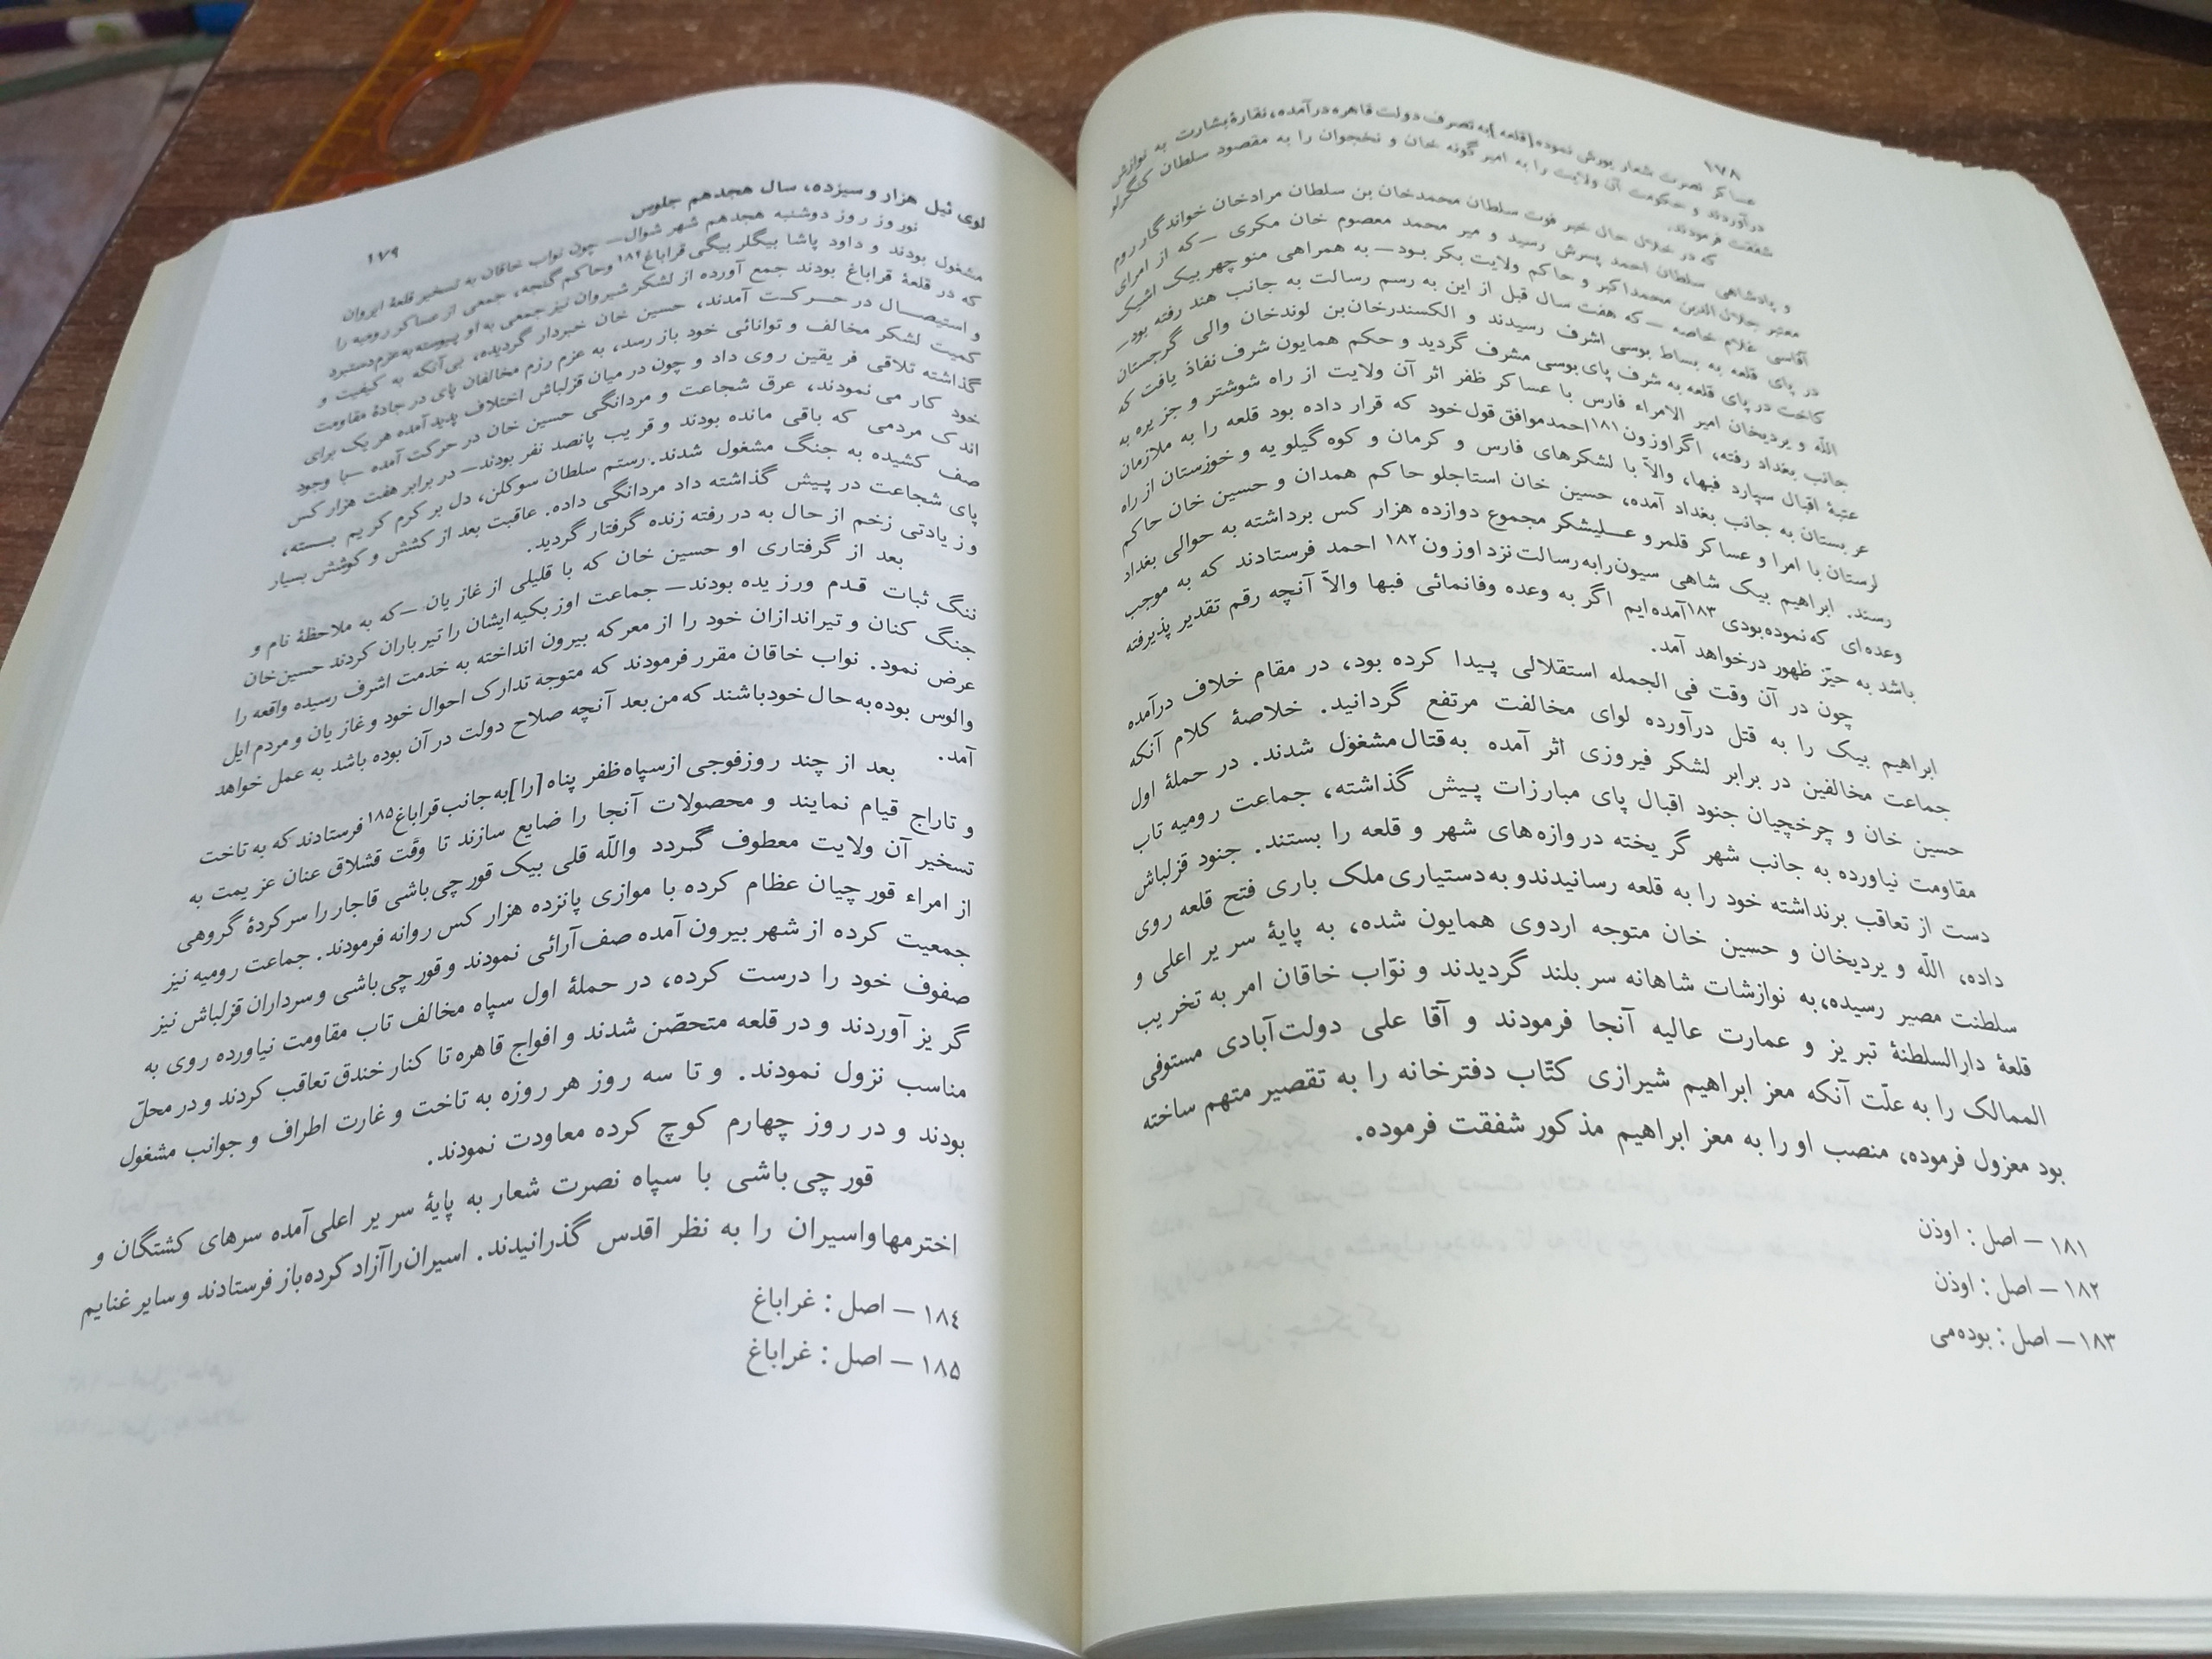 ۱۷۸
عساکر نصرت شعار یورش نموده [قلعه] به تصرف دولت قاهره درآمده، نقارهٔ بشارت به نوازش
درآوردند و حکومت آن ولایت را به امیر گونه خان و نخجوان را به مقصود سلطان کنگرلو
شفقت فرمودند.
که در خلال حال خبر فوت سلطان محمدخان بن سلطان مرادخان خواندگار روم
و پادشاهی سلطان احمد پسرش رسید و میر محمد معصوم خان مکری —که از امرای
معتبر جلال الدین محمداکبر و حاکم ولایت بکر بود— به همراهی منوچهر بیک اشیک
آقاسی غلام خاصه —که هفت سال قبل از این به رسم رسالت به جانب هند رفته بود—
در پای قلعه به بساط بوسی اشرف رسیدند و الکسندرخان بن لوندخان والی گرجستان
کاخت در پای قلعه به شرف پای بوسی مشرف گردید و حکم همایون شرف نفاذ یافت که
اللّه و یردیخان امیر الامراء فارس با عساکر ظفر اثر آن ولایت از راه شوشتر و جزیره به
جانب بغداد رفته، اگر اوزون۱۸۱ احمد موافق قول خود که قرار داده بود قلعه را به ملازمان
عتبهٔ اقبال سپارد فبها، والاّ با لشکرهای فارس و کرمان و کوه گیلویه و خوزستان از راه
عربستان به جانب بغداد آمده، حسین خان استاجلو حاکم همدان و حسین خان حاکم
لرستان با امرا و عساکر قلمرو علیشکر مجموع دوازده هزار کس برداشته به حوالی بغداد
رسند. ابراهیم بیک شاهی سیون را به رسالت نزد اوزون۱۸۲ احمد فرستادند که به موجب
وعده‌ای که نموده بودی۱۸۳ آمده‌ایم اگر به وعده وفانمائی فبها والاّ آنچه رقم تقدیر پذیرفته
باشد به حیّز ظهور درخواهد آمد.
چون در آن وقت فی الجمله استقلالی پیدا کرده بود، در مقام خلاف درآمده
ابراهیم بیک را به قتل درآورده لوای مخالفت مرتفع گردانید. خلاصهٔ کلام آنکه
جماعت مخالفین در برابر لشکر فیروزی اثر آمده به قتال مشغول شدند. در حملهٔ اول
حسین خان و چرخچیان جنود اقبال پای مبارزات پیش گذاشته، جماعت رومیه تاب
مقاومت نیاورده به جانب شهر گریخته دروازه‌های شهر و قلعه را بستند. جنود قزلباش
دست از تعاقب برنداشته خود را به قلعه رسانیدند و به دستیاری ملک باری فتح قلعه روی
داده، اللّه و یردیخان و حسین خان متوجه اردوی همایون شده، به پایهٔ سریر اعلی و
سلطنت مصیر رسیده، به نوازشات شاهانه سر بلند گردیدند و نوّاب خاقان امر به تخریب
قلعهٔ دارالسلطنهٔ تبریز و عمارت عالیه آنجا فرمودند و آقا علی دولت آبادی مستوفی
الممالک را به علّت آنکه معز ابراهیم شیرازی کتّاب دفترخانه را به تقصیر متهم ساخته
بود معزول فرموده، منصب او را به معز ابراهیم مذکور شفقت فرموده.
۱۸۱ — اصل: اوذن
۱۸۲ — اصل: اوذن
۱۸۳ — اصل: بوده‌می
۱۷۹
لوی ئیل هزار و سیزده، سال هجدهم جلوس
نوروز روز دوشنبه هجدهم شهر شوال— چون نواب خاقان به تسخیر قلعهٔ ایروان
مشغول بودند و داود پاشا بیگلر بیگی قراباغ۱۸۴ وحاکم گنجه، جمعی از عساکر رومیه را
که در قلعهٔ قراباغ بودند جمع آورده از لشکر شیروان نیز جمعی به او پیوسته به عزم دستبرد
و استیصال در حرکت آمدند، حسین خان خبردار گردیده، بی‌آنکه به کیفیت و
کمیت لشکر مخالف و توانائی خود باز رسد، به عزم رزم مخالفان پای در جادهٔ مقاومت
گذاشته تلاقی فریقین روی داد و چون در میان قزلباش اختلاف پدید آمده هر یک برای
خود کار می نمودند، عرق شجاعت و مردانگی حسین خان در حرکت آمده —با وجود
اندک مردمی که باقی مانده بودند و قریب پانصد نفر بودند— در برابر هفت هزار کس
صف کشیده به جنگ مشغول شدند. رستم سلطان سوکلن، دل بر کرم کریم بسته،
پای شجاعت در پیش گذاشته داد مردانگی داده. عاقبت بعد از کشش و کوشش بسیار
وزیادتی زخم از حال به در رفته زنده گرفتار گردید.
بعد از گرفتاری او حسین خان که با قلیلی از غازیان —که به ملاحظهٔ نام و
ننگ ثبات قدم ورزیده بودند— جماعت اوزبکیه ایشان را تیر باران کردند حسین خان
جنگ کنان و تیراندازان خود را از معرکه بیرون انداخته به خدمت اشرف رسیده واقعه را
عرض نمود. نواب خاقان مقرر فرمودند که متوجهٔ تدارک احوال خود و غازیان و مردم ایل
والوس بوده به حال خود باشند که من بعد آنچه صلاح دولت در آن بوده باشد به عمل خواهد
آمد.
بعد از چند روز فوجی از سپاه ظفر پناه [را] به جانب قراباغ۱۸۵ فرستادند که به تاخت
و تاراج قیام نمایند و محصولات آنجا را ضایع سازند تا وقت قشلاق عنان عزیمت به
تسخیر آن ولایت معطوف گردد واللّه قلی بیک قورچی باشی قاجار را سرکردهٔ گروهی
از امراء قورچیان عظام کرده با موازی پانزده هزار کس روانه فرمودند. جماعت رومیه نیز
جمعیت کرده از شهر بیرون آمده صف آرائی نمودند و قورچی باشی و سرداران قزلباش نیز
صفوف خود را درست کرده، در حملهٔ اول سپاه مخالف تاب مقاومت نیاورده روی به
گریز آوردند و در قلعه متحصّن شدند و افواج قاهره تا کنار خندق تعاقب کردند و در محلّ
مناسب نزول نمودند. و تا سه روز هر روزه به تاخت و غارت اطراف و جوانب مشغول
بودند و در روز چهارم کوچ کرده معاودت نمودند.
قورچی باشی با سپاه نصرت شعار به پایهٔ سریر اعلی آمده سرهای کشتگان و
اخترمها و اسیران را به نظر اقدس گذرانیدند. اسیران را آزاد کرده باز فرستادند و سایر غنایم
۱۸۴ — اصل: غراباغ
۱۸۵ — اصل: غراباغ